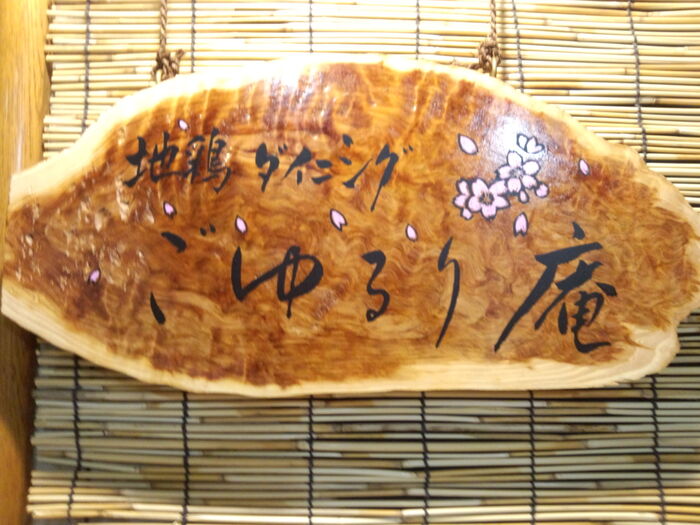 地鶏ダイニング
ごゆるり庵